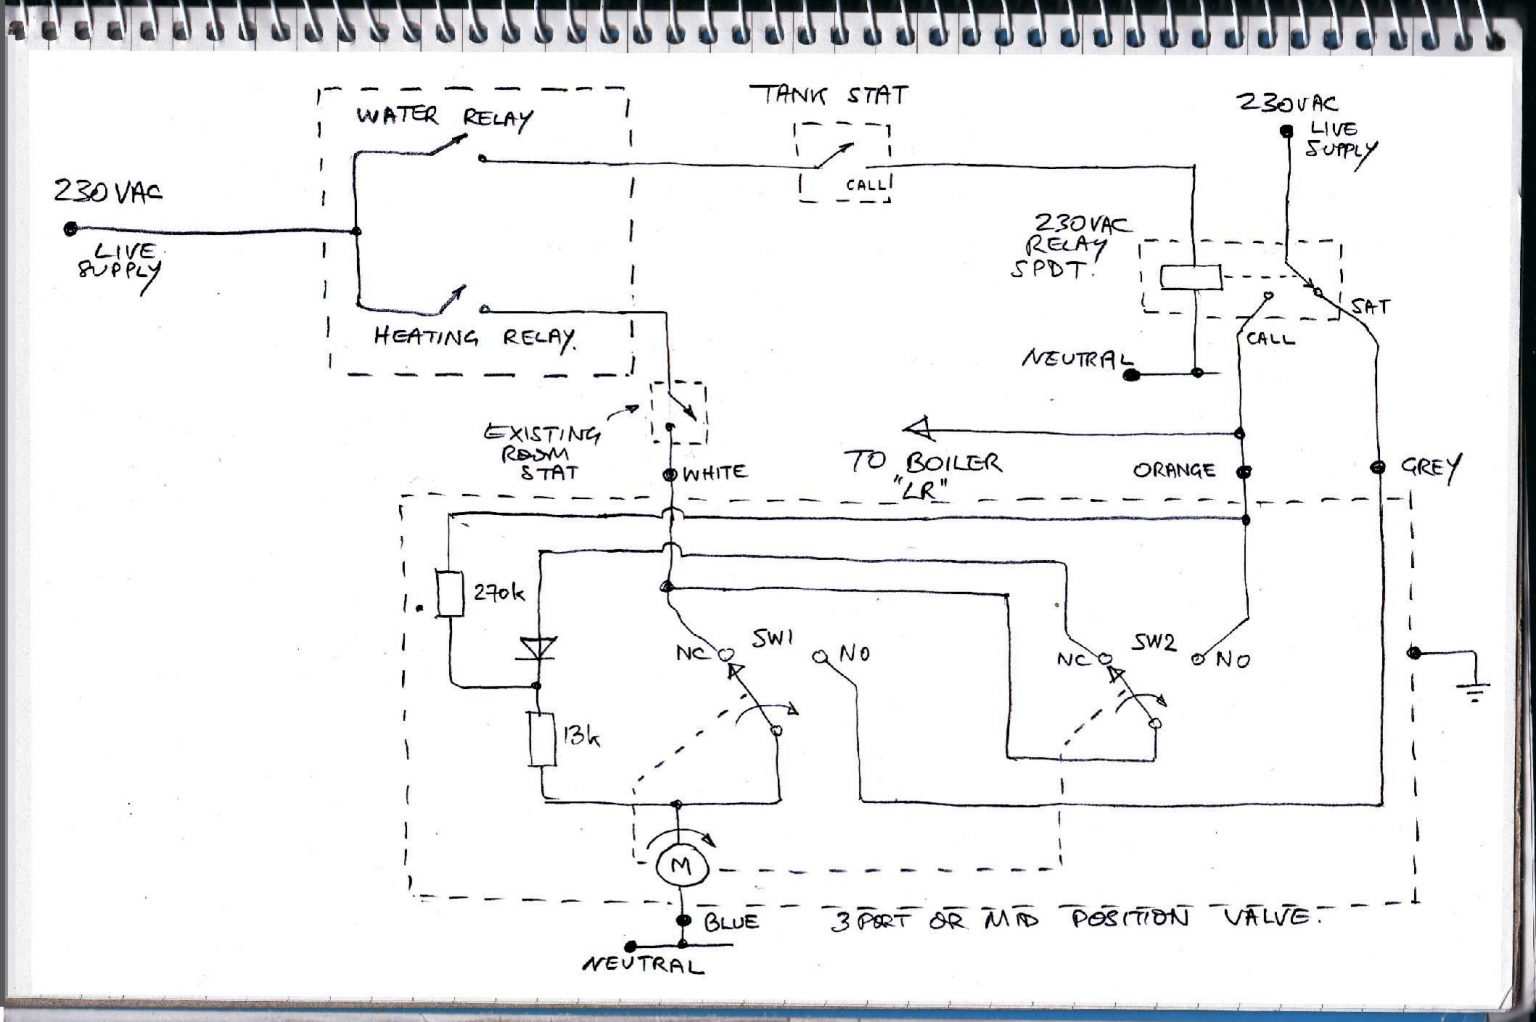 WATER RELAY
TANK STAT
CALL
230VAC
LIVE
SUPPLY
230VAC
LIVE
SUPPLY
230VAC
RELAY
SPDT.
SAT
CALL
HEATING RELAY.
NEUTRAL
EXISTING
ROOM
STAT
WHITE
TO BOILER
"LR"
ORANGE
GREY
270k
NC
SW1
NO
NC
SW2
NO
13k
M
BLUE
3 PORT OR MID POSITION VALVE.
NEUTRAL